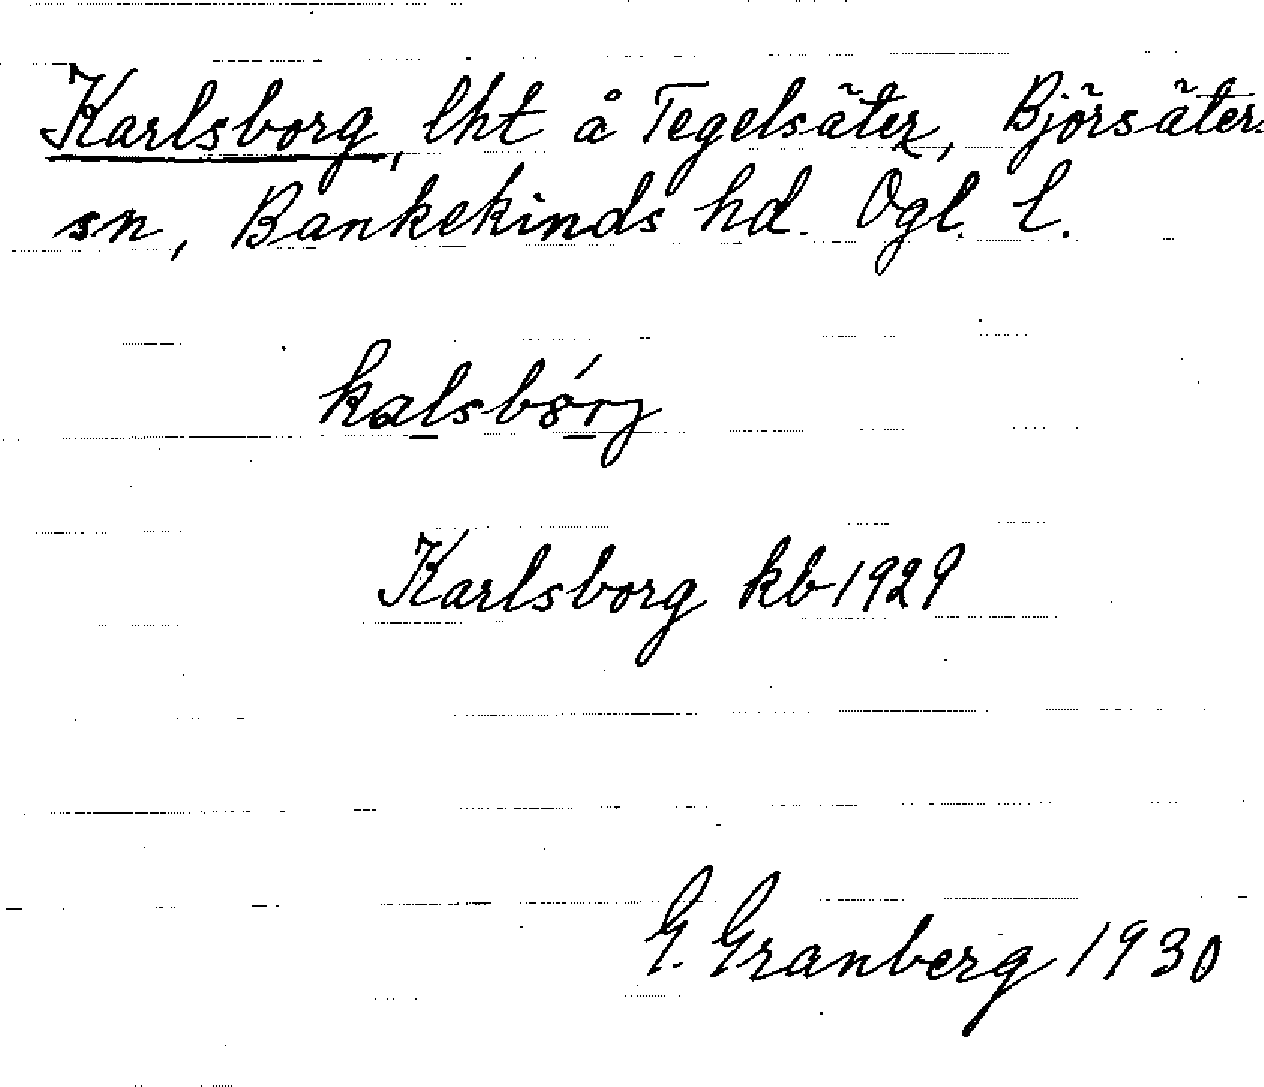 Karlsborg, lht å Tegelsäter, Björsäters
sn, Bankekinds hd. Ögl. l.
Karlsborg kb 1929
G. Granberg 1930